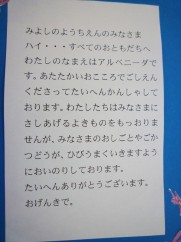 みよしのようちえんのみなさま
ハイ・・・すべてのおともだちへ
わたしのなまえはアルベニーダで
す。あたたかいおこころでごしえん
くださってたいへんかんしゃして
おります。わたしたちはみなさまに
さしあげるよきものをもっておりま
せんが、みなさまのおしごとやごか
つどうが、ひびうまくいきますよう
においのりしております。
たいへんありがとうございます。
おげんきで。